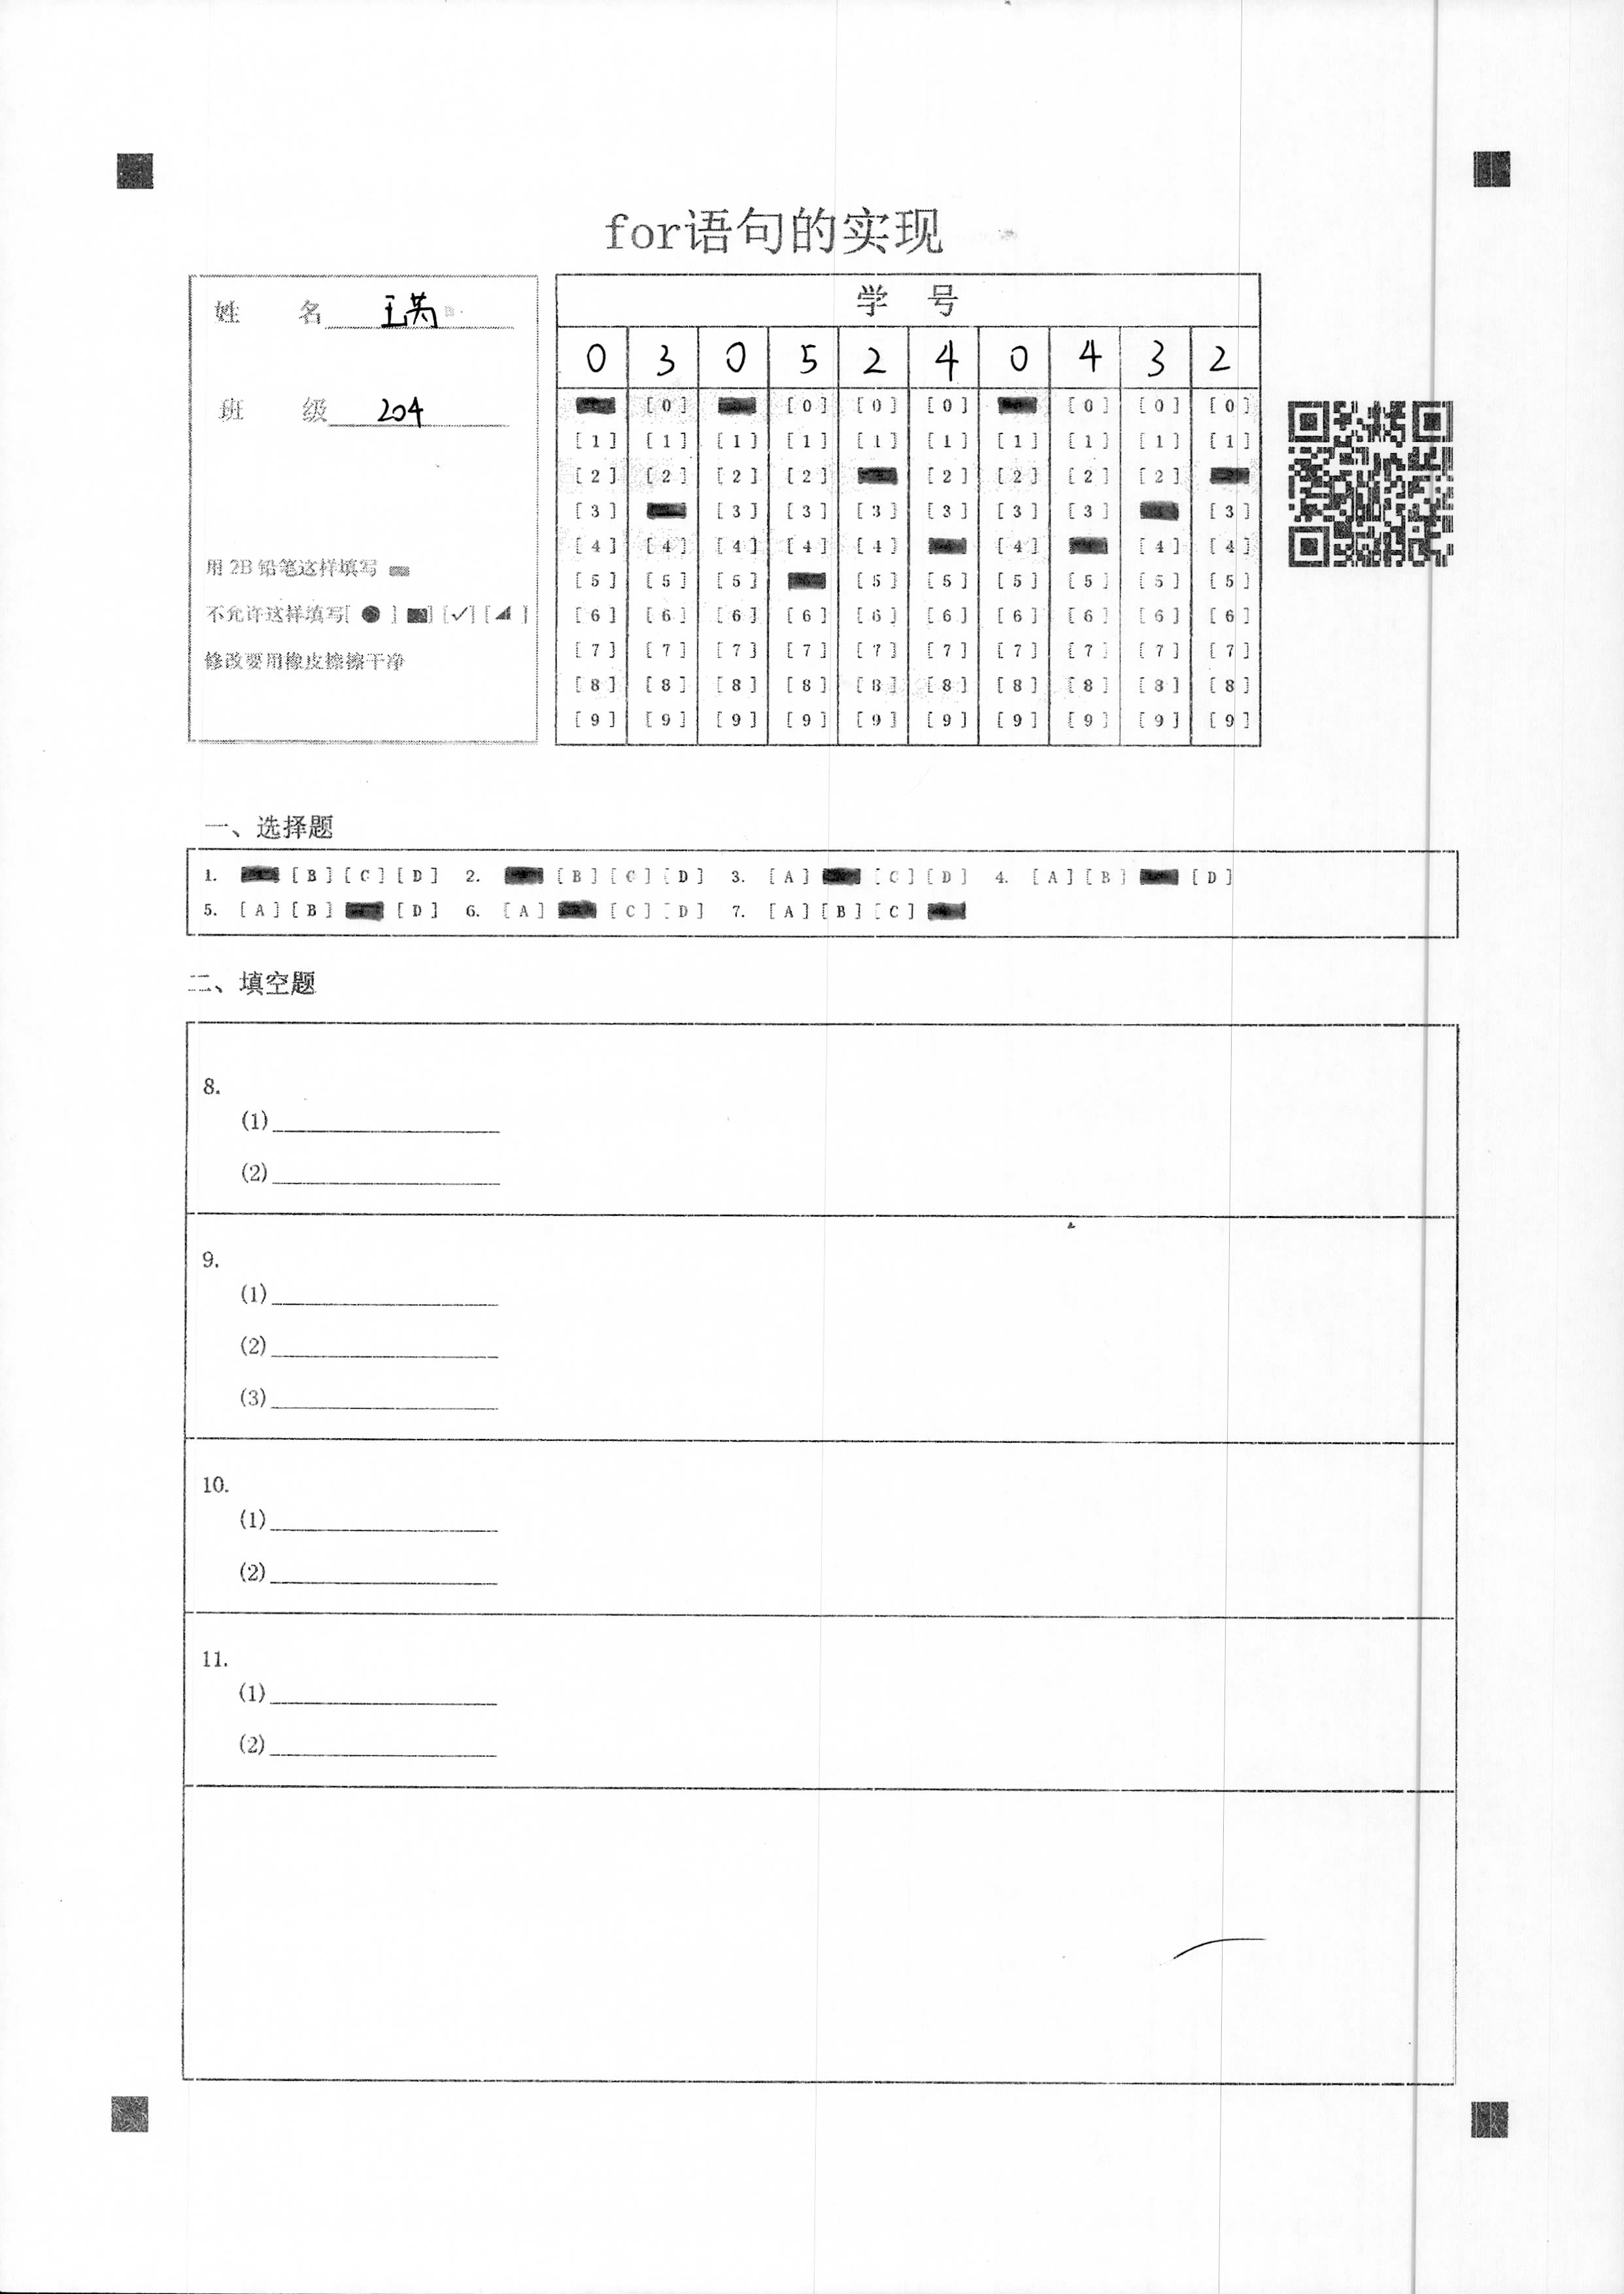 for语句的实现
姓 名 王英
班 级 204
用 2B 铅笔这样填写
不允许这样填写[ ● ] ■] [✓] [◢ ]
修改要用橡皮擦擦干净
学 号
0 3 0 5 2 4 0 4 3 2
[0] [0] [0] [0] [0] [0] [0]
[1] [1] [1] [1] [1] [1] [1] [1] [1] [1]
[2] [2] [2] [2] [2] [2] [2] [2]
[3] [3] [3] [3] [3] [3] [3] [3]
[4] [4] [4] [4] [4] [4] [4] [4]
[5] [5] [5] [5] [5] [5] [5] [5] [5]
[6] [6] [6] [6] [6] [6] [6] [6] [6] [6]
[7] [7] [7] [7] [7] [7] [7] [7] [7] [7]
[8] [8] [8] [8] [8] [8] [8] [8] [8] [8]
[9] [9] [9] [9] [9] [9] [9] [9] [9] [9]
一、选择题
1. [B] [C] [D] 2. [B] [C] [D] 3. [A] [C] [D] 4. [A] [B] [D]
5. [A] [B] [D] 6. [A] [C] [D] 7. [A] [B] [C]
二、填空题
8.
(1)
(2)
9.
(1)
(2)
(3)
10.
(1)
(2)
11.
(1)
(2)